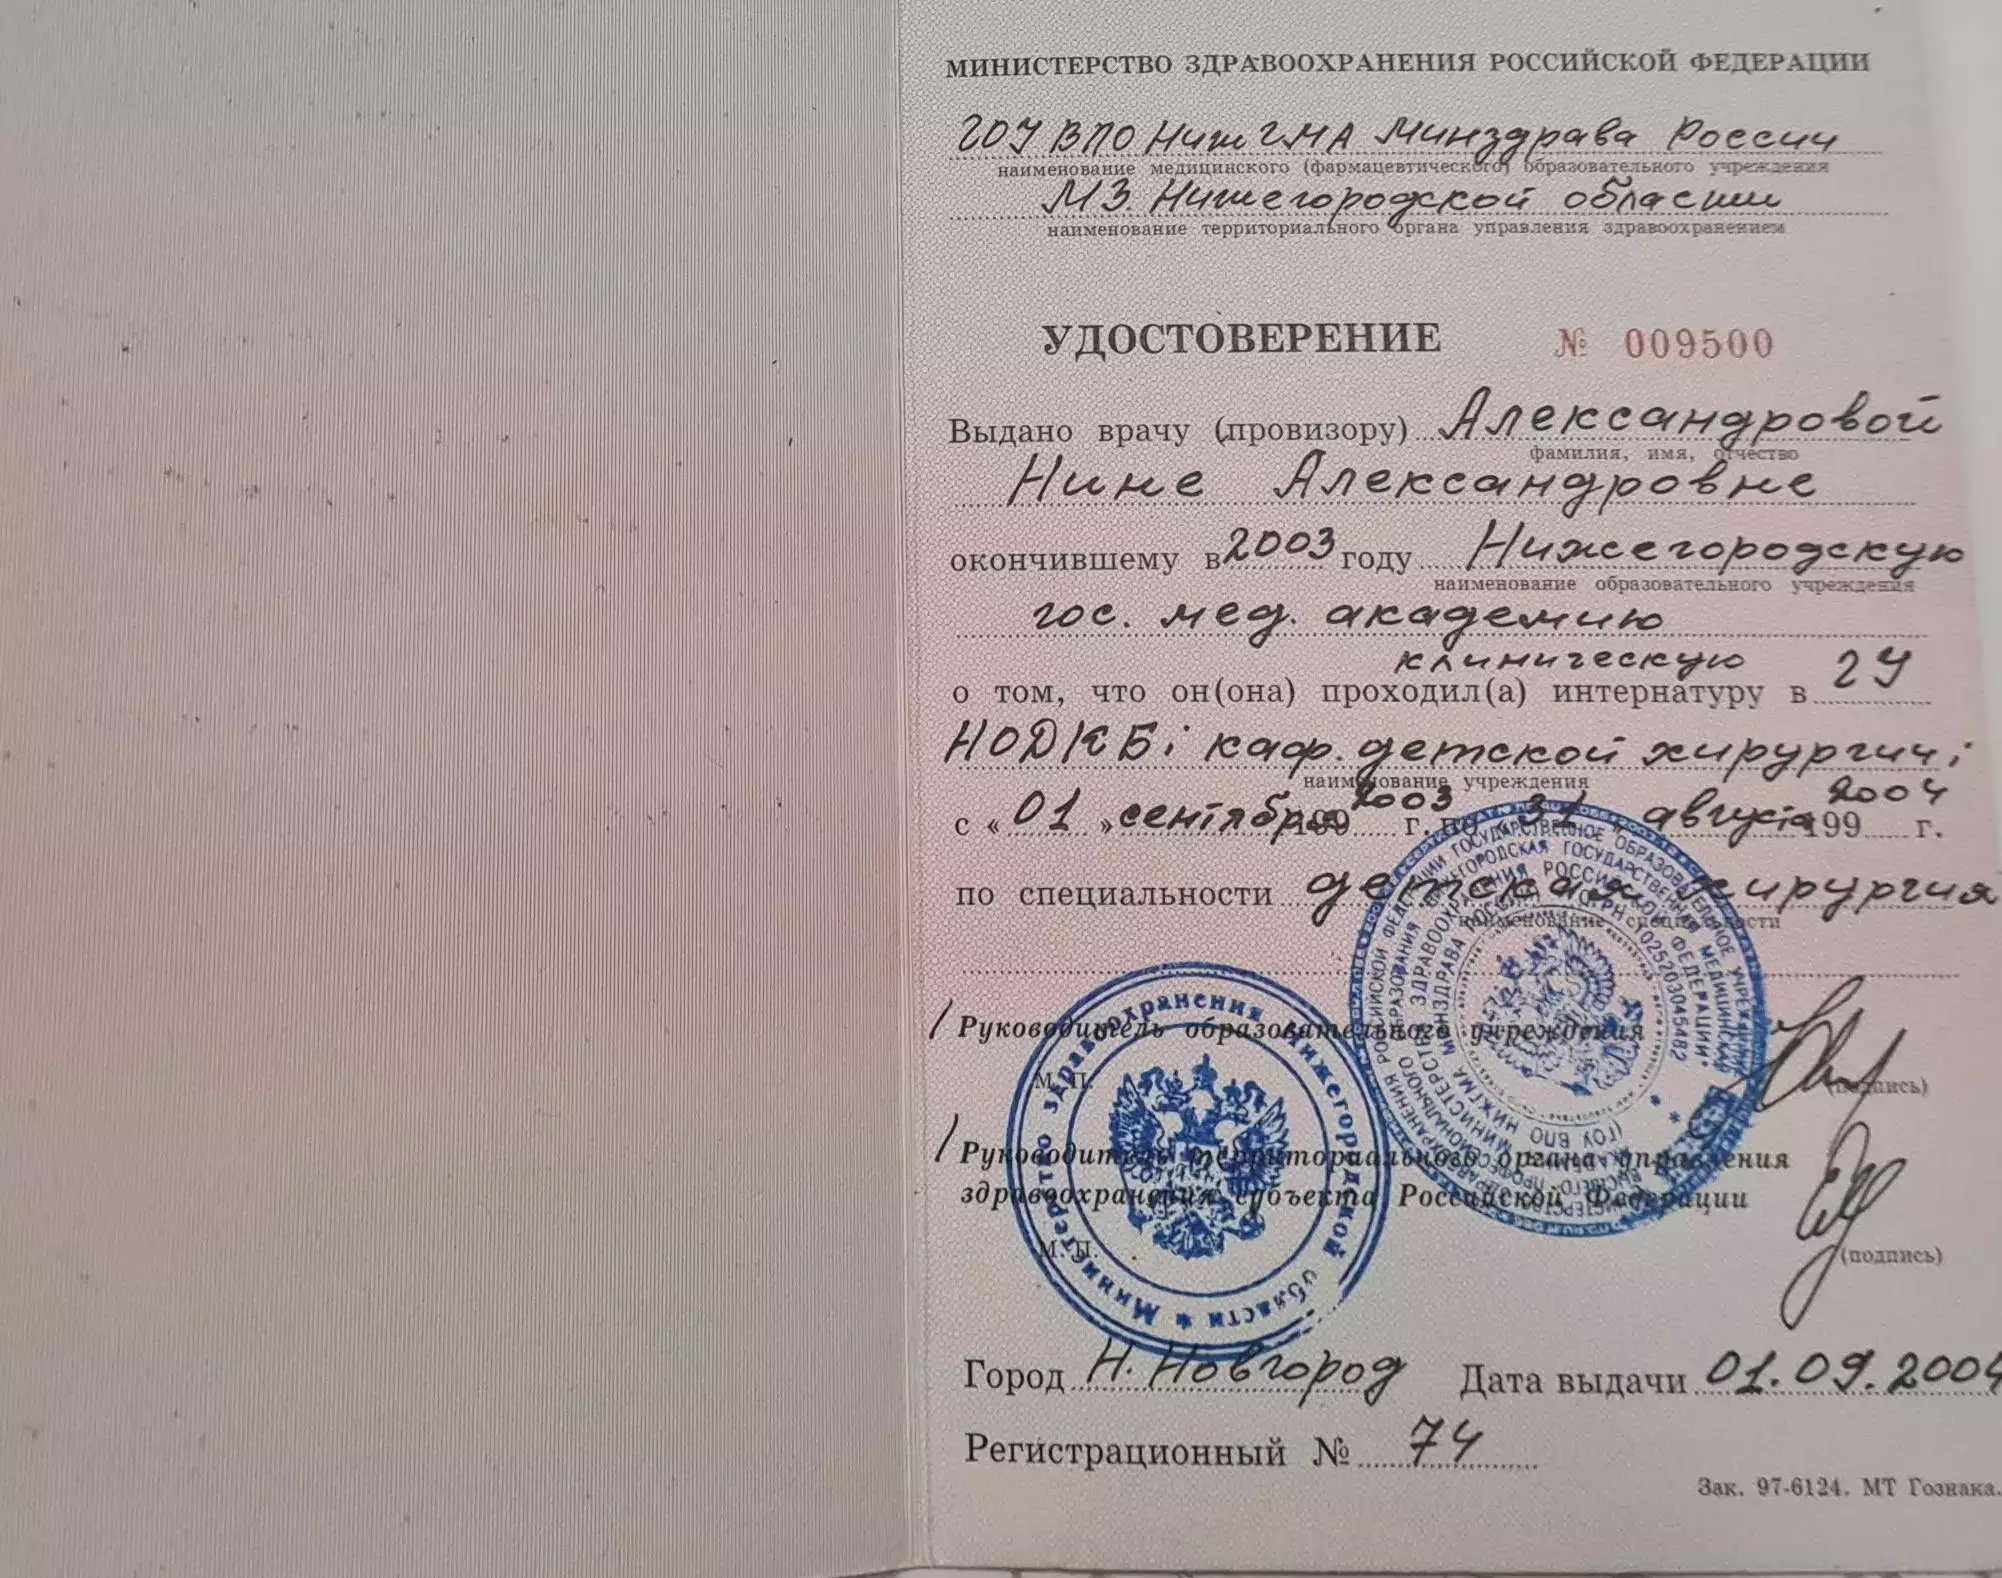 МИНИСТЕРСТВО ЗДРАВООХРАНЕНИЯ РОССИЙСКОЙ ФЕДЕРАЦИИ
ГОУ ВПО НижГМА Минздрава России
наименование медицинского (фармацевтического) образовательного учреждения
МЗ Нижегородской области
наименование территориального органа управления здравоохранением
УДОСТОВЕРЕНИЕ № 009500
Выдано врачу (провизору) Александровой
фамилия, имя, отчество
Нине Александровне
окончившему в 2003 году Нижегородскую
наименование образовательного учреждения
гос. мед. академию
клиническую
о том, что он(она) проходил(а) интернатуру в ГУ
НОДКБ; каф. детской хирургии;
наименование учреждения
с «01» сентября 199 2003 г. по «31» августа 199 2004 г.
по специальности детская хирургия
наименование специальности
Руководитель образовательного учреждения
М. П.
(подпись)
Руководитель территориального органа управления
здравоохранения субъекта Российской Федерации
М. П.
(подпись)
Министерство здравоохранения Нижегородской области
Город Н. Новгород Дата выдачи 01.09.2004
Регистрационный № 74
Зак. 97-6124. МТ Гознака.